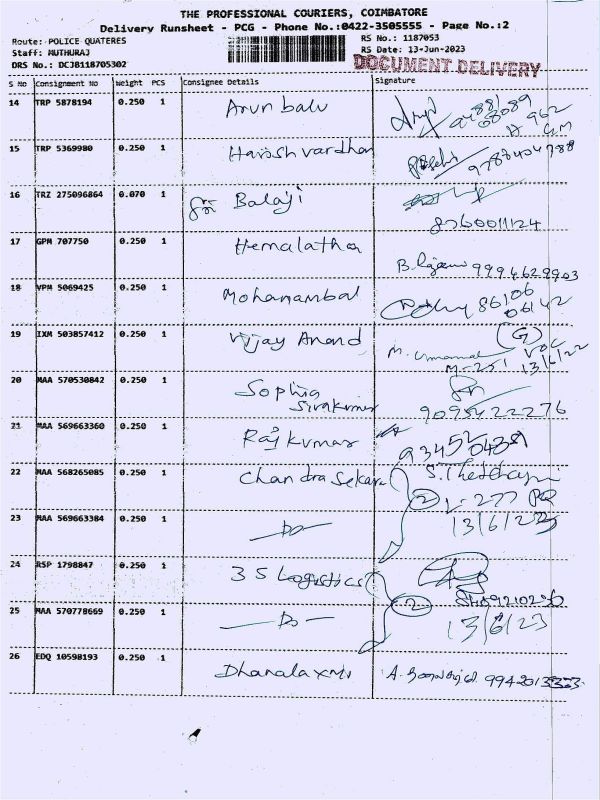 THE PROFESSIONAL COURIERS, COIMBATORE
Delivery Runsheet - PCG - Phone No.:0422-3505555 - Page No.:2
Route: POLICE QUATERES RS No.: 1187053
Staff: MUTHURAJ RS Date: 13-Jun-2023
DRS No.: DCJB118705302 DOCUMENT DELIVERY
S No Consignment No Weight PCS Consignee Details Signature
14 TRP 5878194 0.250 1 Arun balu
15 TRP 5369980 0.250 1 Harish vardhan
16 TRZ 275096864 0.070 1 Sri Balaji
8760011124
17 GPM 707750 0.250 1 Hemalatha
9994629903
18 VPM 5069425 0.250 1 Mohanambal 86106
06142
19 IXM 503857412 0.250 1 Vijay Anand
20 MAA 570530842 0.250 1 Sophia
Sivakumar
9095422276
21 MAA 569663360 0.250 1 Rajkumar
22 MAA 568265085 0.250 1 Chandra Sekara
2
23 MAA 569663384 0.250 1 Do
13/6/23
24 RSP 1798847 0.250 1 3 S Logistics
2
25 MAA 570778669 0.250 1 Do 13/6/23
26 EDQ 10598193 0.250 1 Dhanalaxmi